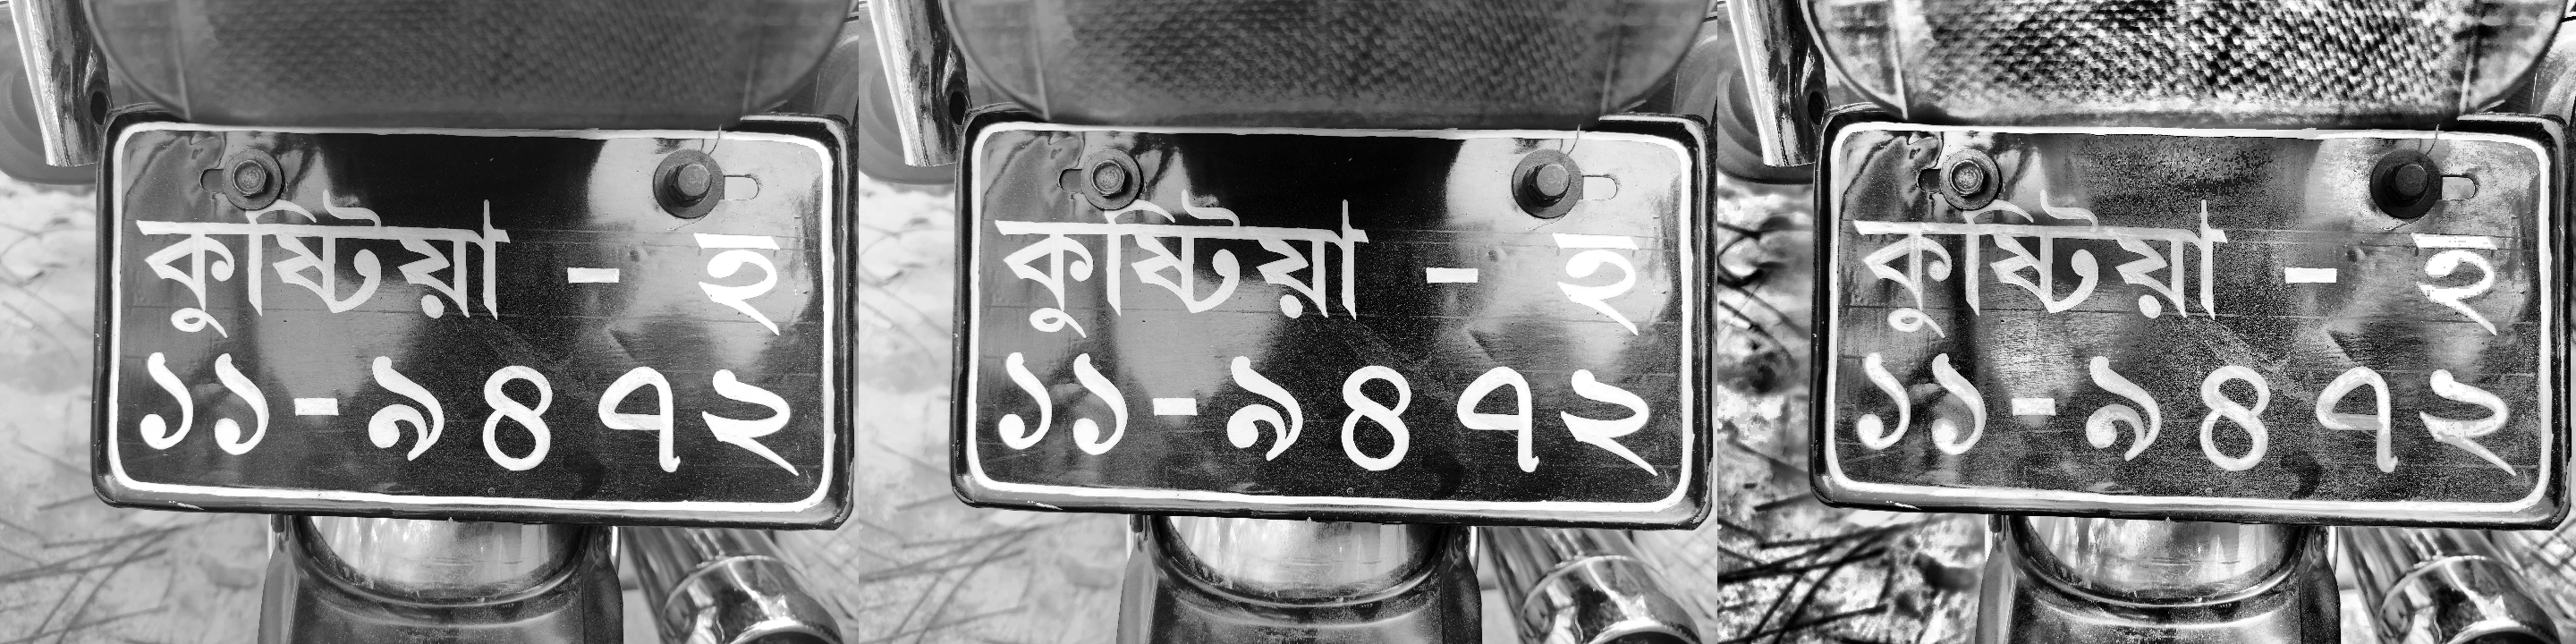 কুষ্টিয়া - হ
১১-৯৪৭২
কুষ্টিয়া - হ
১১-৯৪৭২
কুষ্টিয়া - হ
১১-৯৪৭২